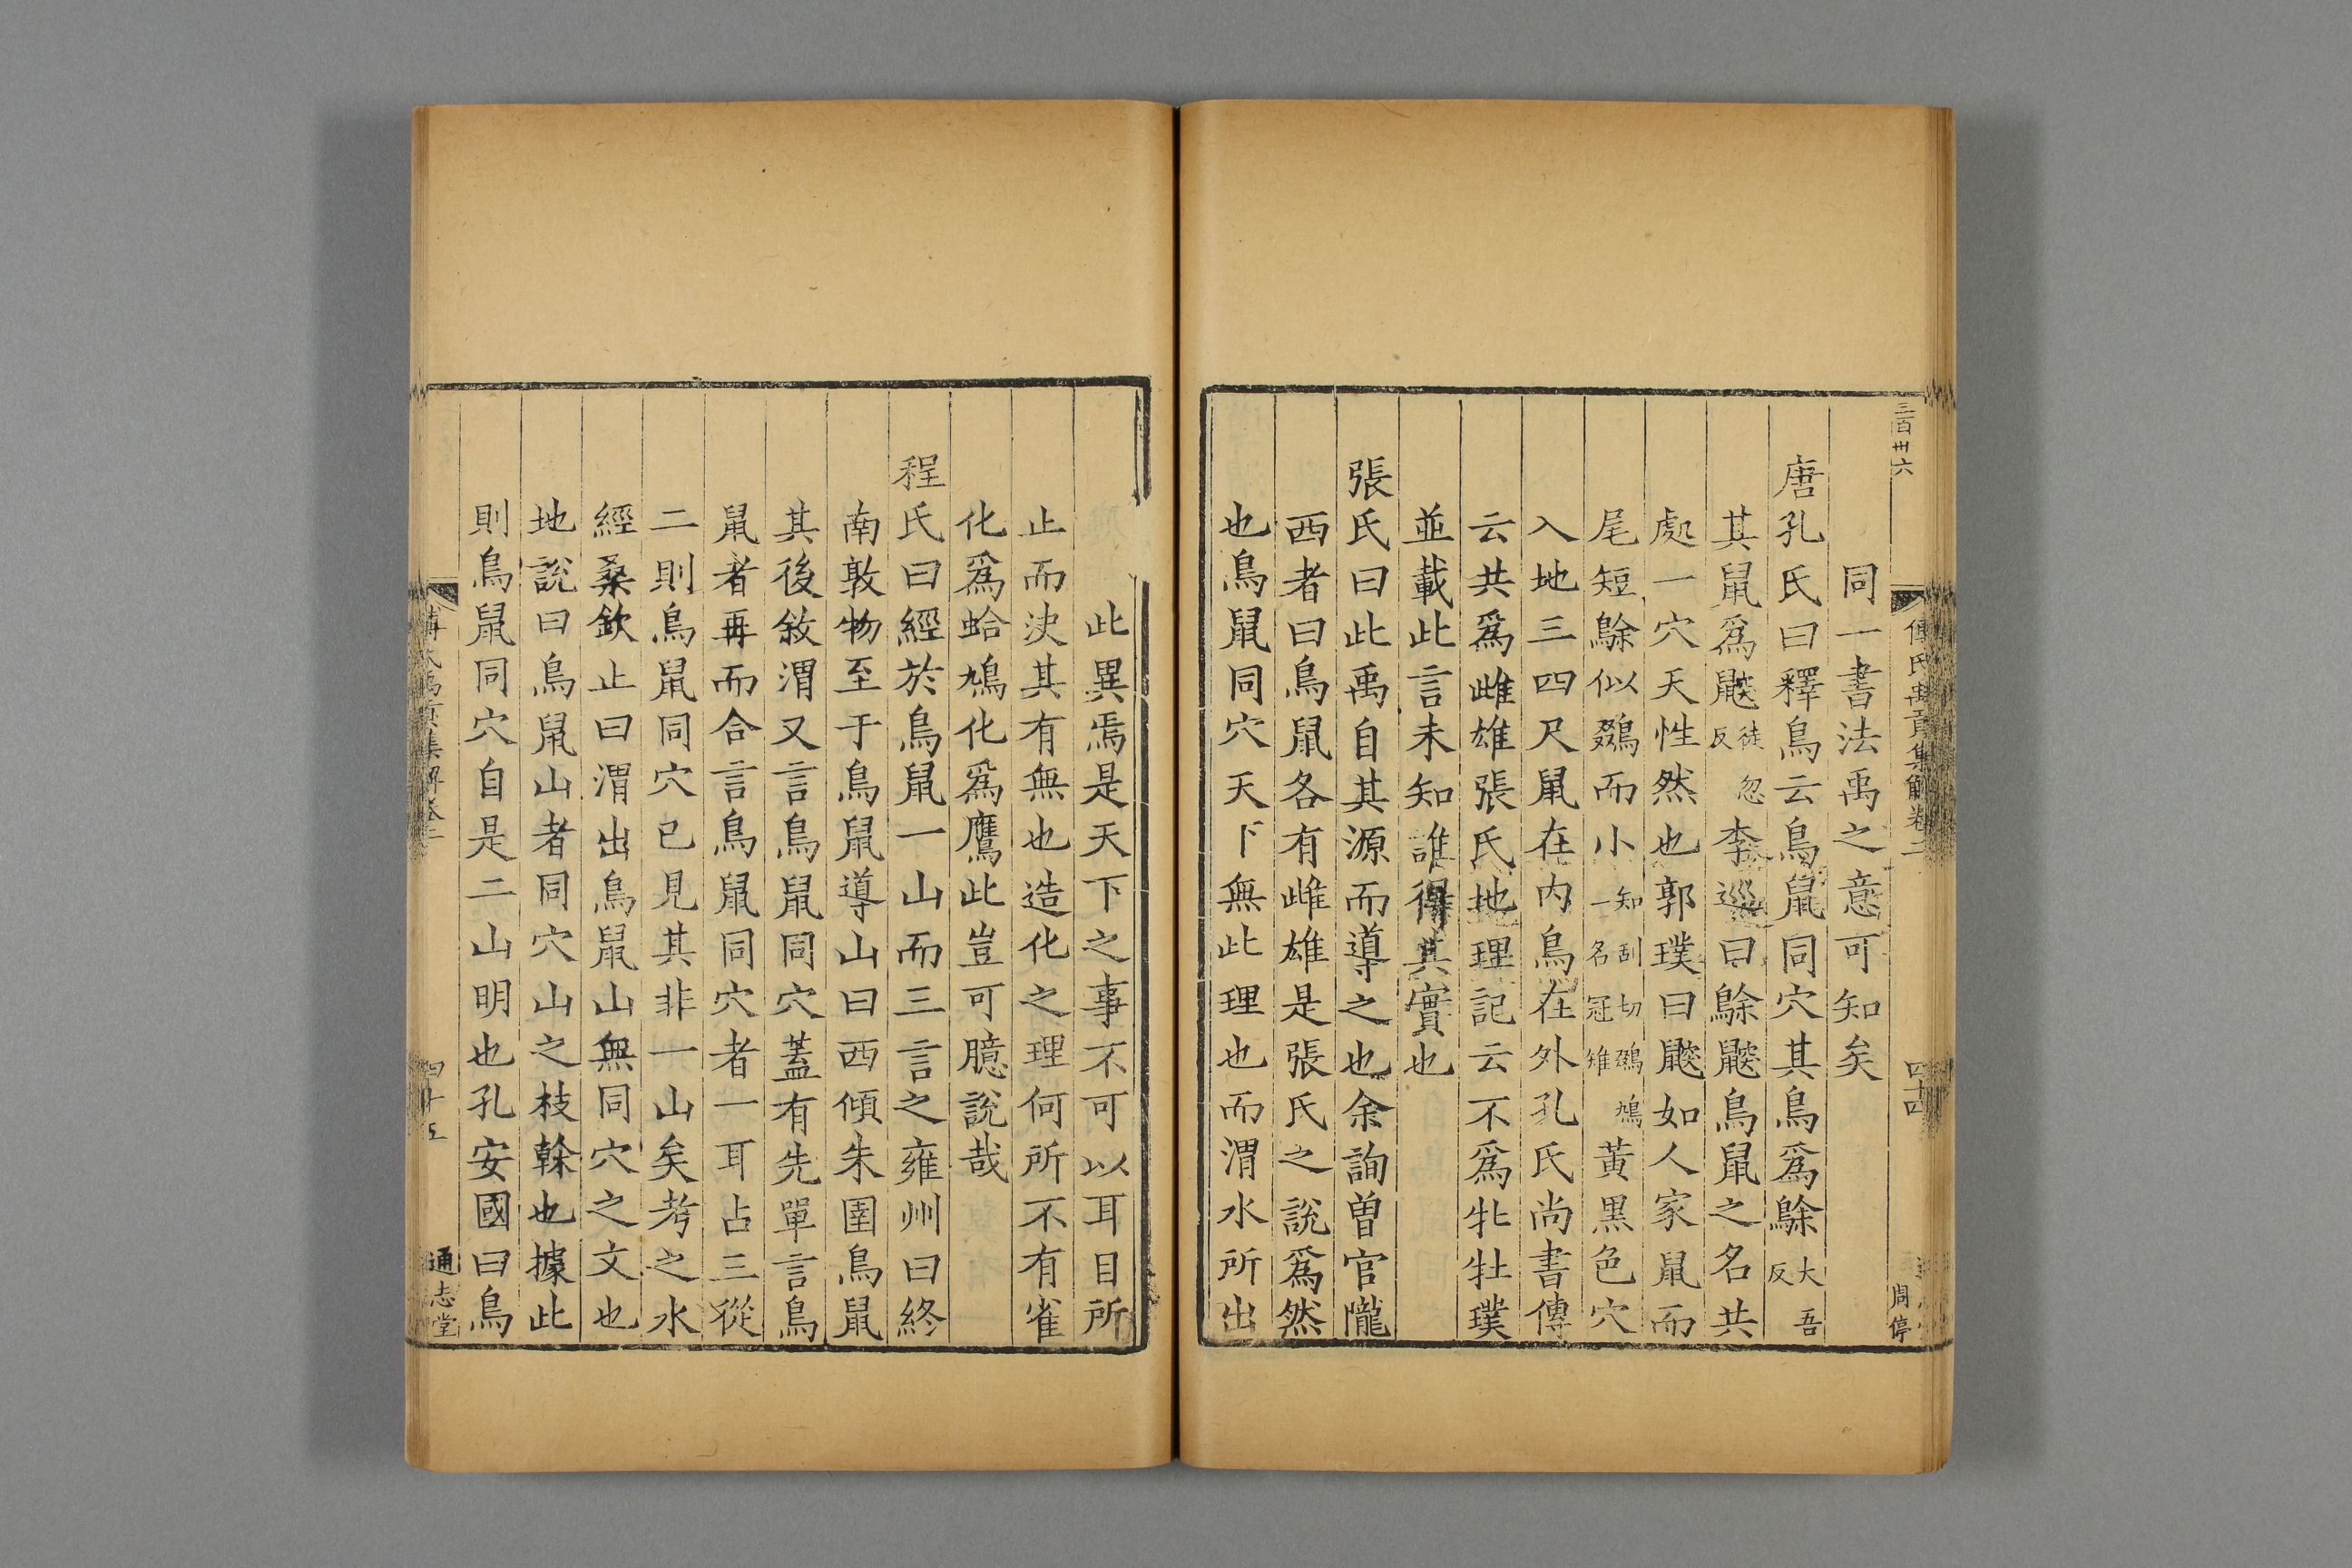 三百卌六
傅氏禹貢集解卷二
四十四
周停
同一書法禹之意可知矣
唐孔氏曰釋鳥云鳥鼠同穴其鳥爲鵌大吾反
其鼠爲鼵徒忽反李巡曰鵌鼵鳥鼠之名共
處一穴天性然也郭璞曰鼵如人家鼠而
尾短鵌似鵽而小知刮切鵽鳩一名冠雉黃黑色穴
入地三四尺鼠在内鳥在外孔氏尚書傳
云共爲雌雄張氏地理記云不爲牝牡璞
並載此言未知誰得其實也
張氏曰此禹自其源而導之也余詢曽官隴
西者曰鳥鼠各有雌雄是張氏之說爲然
也鳥鼠同穴天下無此理也而渭水所出
此異焉是天下之事不可以耳目所
止而決其有無也造化之理何所不有雀
化爲蛤鳩化爲鷹此豈可臆說哉
程氏曰經於鳥鼠一山而三言之雍州曰終
南敦物至于鳥鼠導山曰西傾朱圉鳥鼠
其後敘渭又言鳥鼠同穴蓋有先單言鳥
鼠者再而合言鳥鼠同穴者一耳占三從
二則鳥鼠同穴已見其非一山矣考之水
經桑欽止曰渭出鳥鼠山無同穴之文也
地說曰鳥鼠山者同穴山之枝榦也據此
則鳥鼠同穴自是二山明也孔安國曰鳥
傅氏禹貢集解卷二
四十五
通志堂